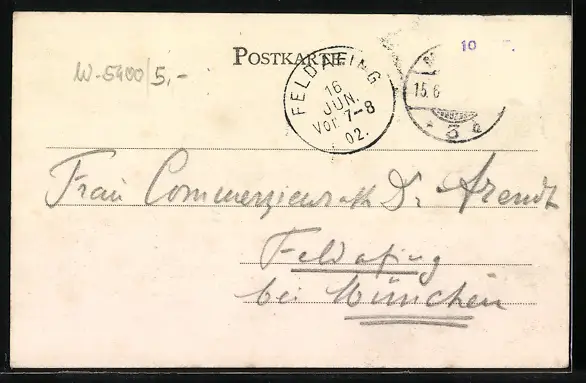 POSTKARTE
W-5900/5,-
FELDAFING
16
JUN.
Vor. 7-8
02.
10
15.6
3
Frau Commerzienrath Dr. Arendt
Feldafing
bei München